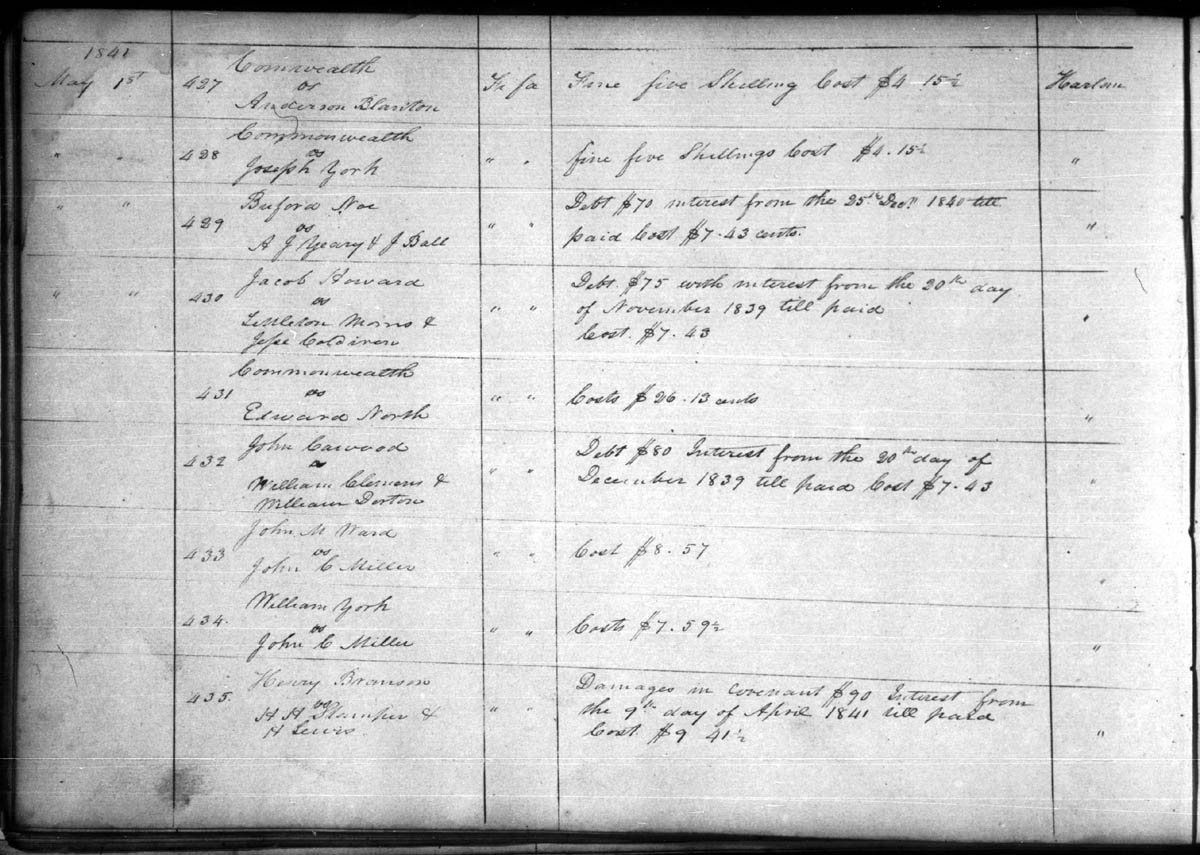 1841
May 1st 427 Comwealth
vs Fi fa Fine five Shilling Cost $4 15½ Harlan
Anderson Blanton
Commonwealth
" " 428 vs " " fine five Shillings Cost $4. 15½ "
Joseph York
" " Buford Noe Debt $70 interest from the 25th Decr. 1840 till
429 vs " " "
A J Yeary & J Ball paid Cost $7. 43 cents.
Jacob Howard Debt. $75 with interest from the 20th day
" " 430 vs " " of November 1839 till paid "
Littleton Morris &
Jesse Coldiron Cost. $7. 43
Commonwealth
431 vs " " Costs $26. 13 cents
Edward North "
John Cawood Debt $80 Interest from the 20th day of
432 vs " " "
William Clemens & December 1839 till paid Cost $7. 43
William Dorton
John M Ward
433 vs " " Cost $8. 57
John C Miller "
William York
434. vs " " Costs $7. 59½
John C Miller "
Henry Bronson Damages in Covenant $90 Interest from
435. vs " " the 9th day of April 1841 till paid
H H Stamper &
H Lewis. Cost. $9 41½ "